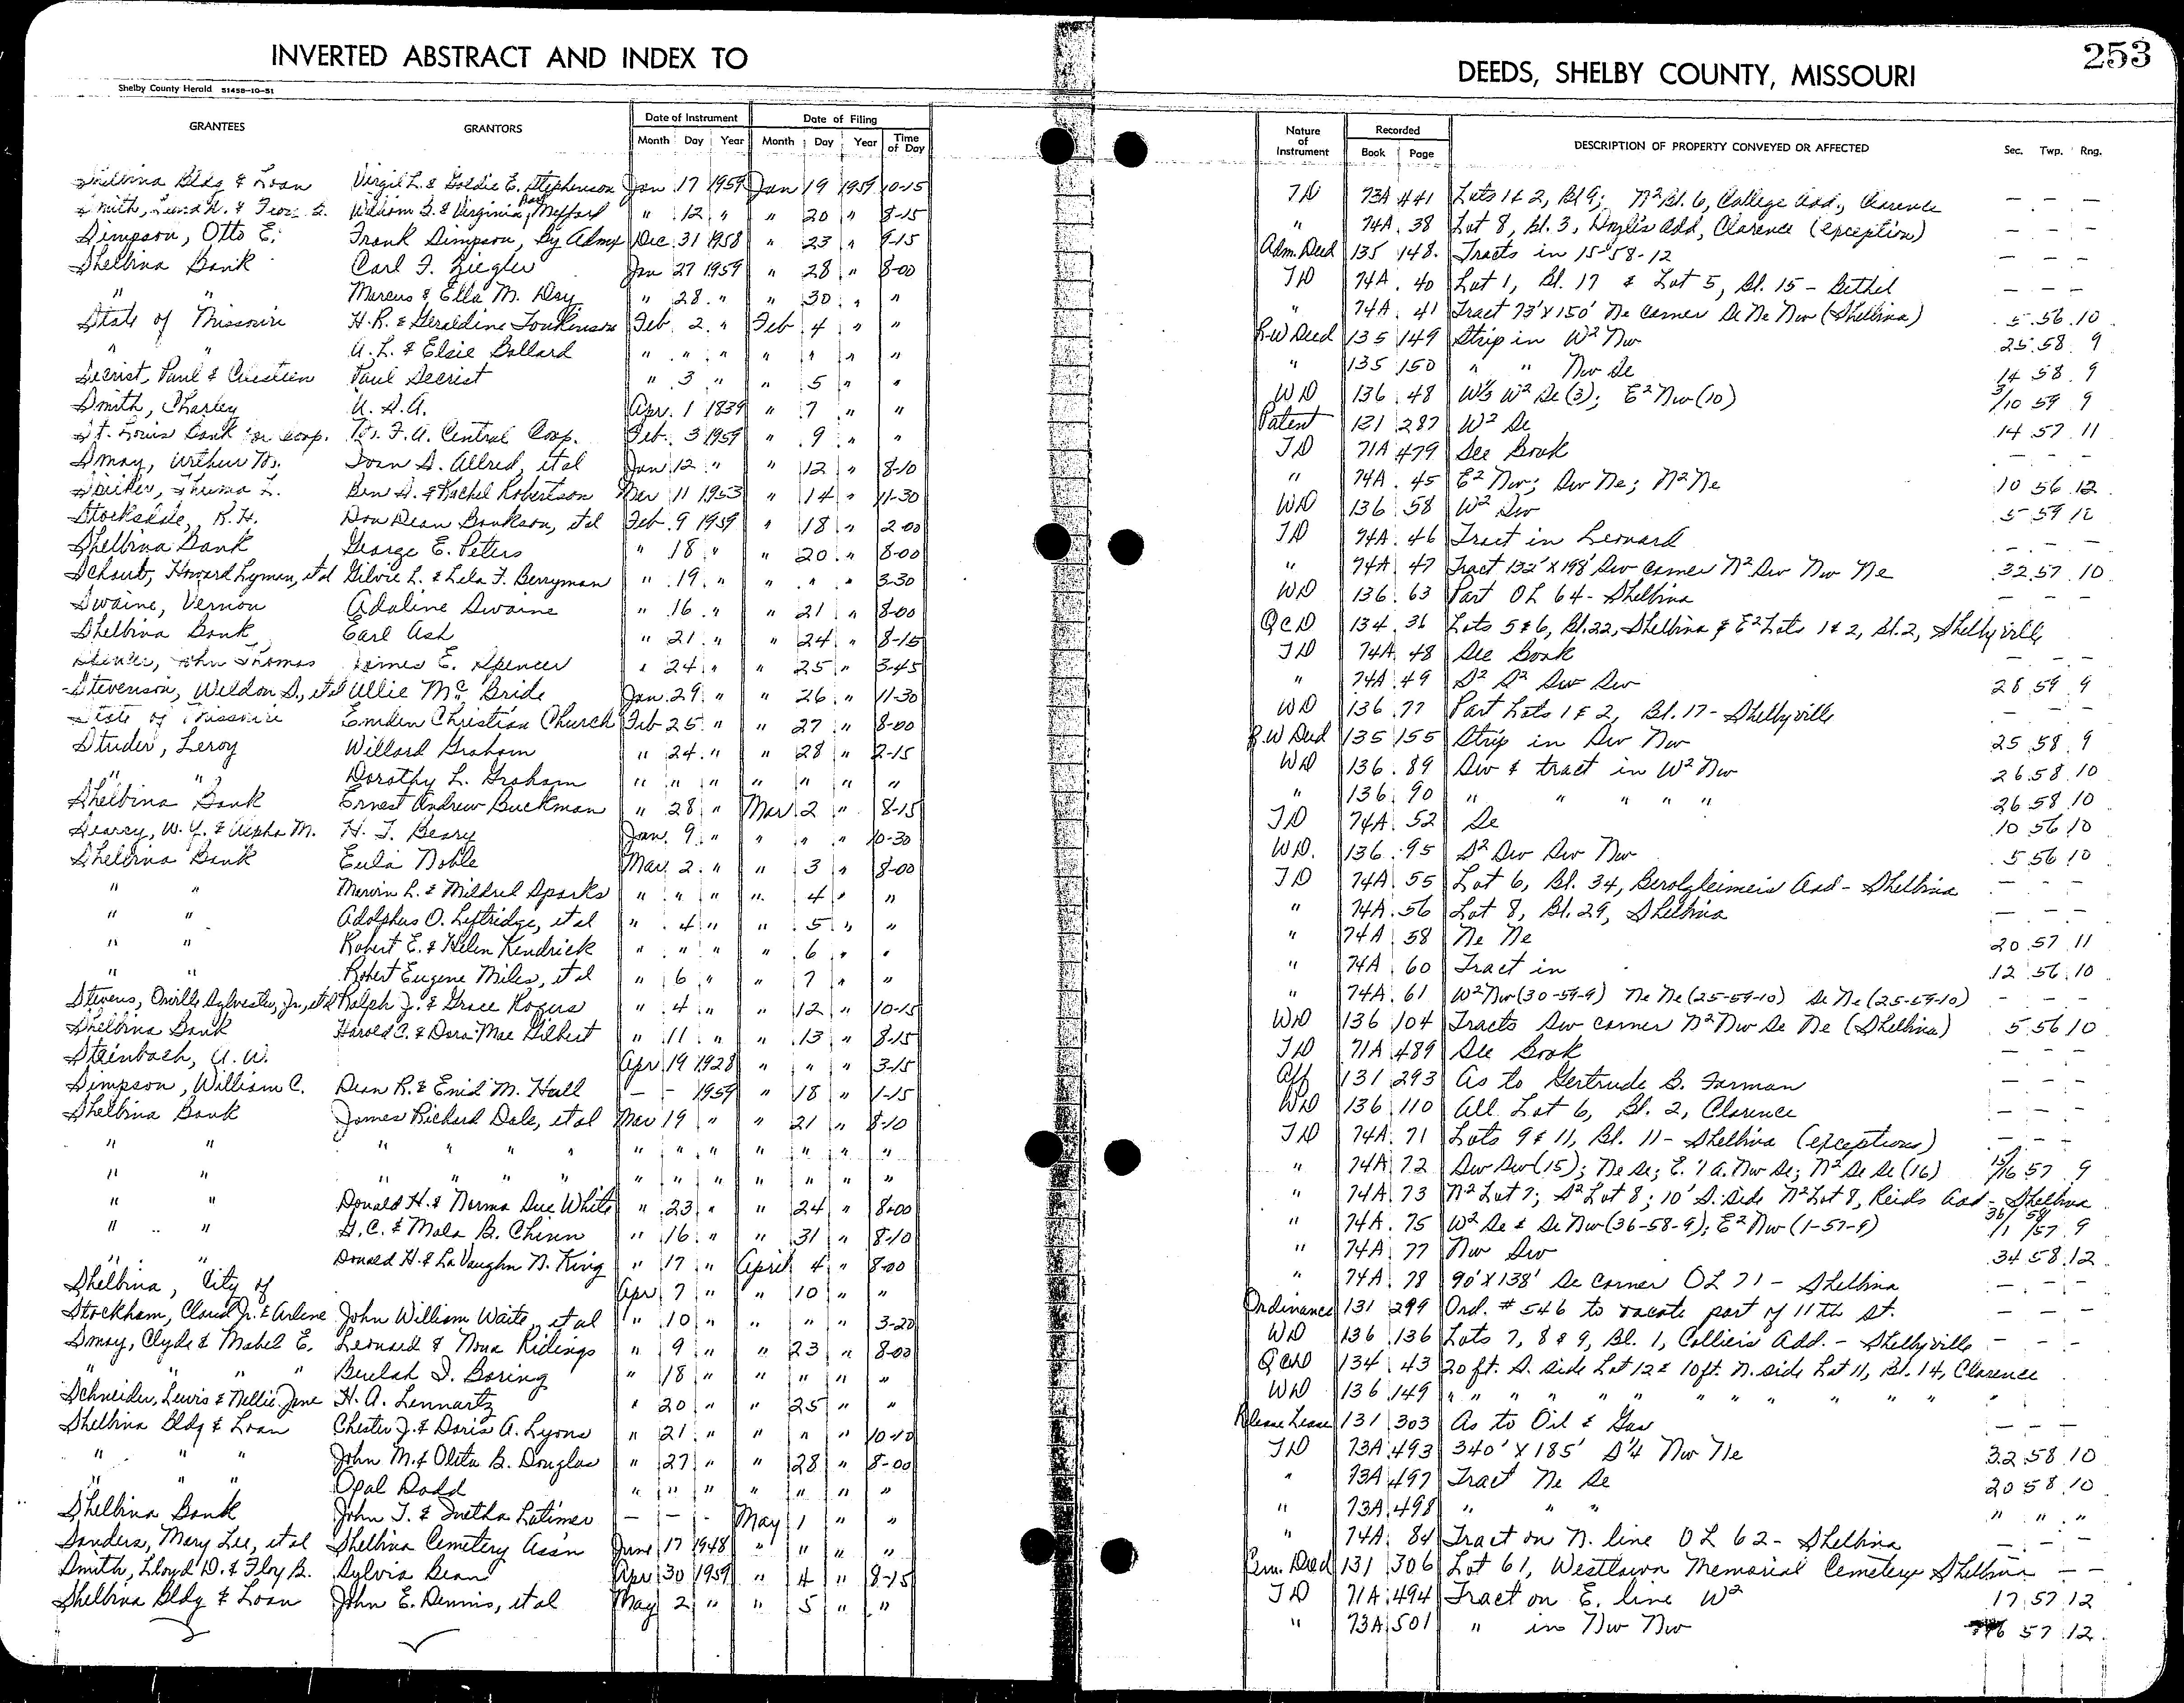 INVERTED ABSTRACT AND INDEX TO
Shelby County Herald 51458-10-51
GRANTEES GRANTORS Date of Instrument Date of Filing
Month Day Year Month Day Year Time of Day
Shelbina Bldg & Loan Virgil L. & Goldie E. Stephenson Jan 17 1959 Jan 19 1959 10-15
Smith, William & Virginia Mefford " 12 " " 20 " 8-15
Simpson, Otto E. Frank Simpson, By Admx Dec 31 1958 " 23 " 9-15
Shelbina Bank Carl F. Ziegler Jan 27 1959 " 28 " 8-00
" " Marcus & Ella M. Day " 28 " " 30 " "
State of Missouri H.R. & Geraldine Tonkinson Feb 2 " Feb 4 " "
" " U.L. & Elsie Ballard " " " " " " "
Secrist, Paul & Paul Secrist " 3 " " 5 " "
Smith, Charley U.S.A. Apr. 1 1839 " 7 " "
St. Louis Bank for Coop. M.F.A. Central Coop. Feb. 3 1959 " 9 " "
Smay, Arthur W. S. Allred, et al Jan 12 " " 12 " 8-10
Ben A. & Rachel Robertson Mar 11 1953 " 14 " 11-30
R.H. Don Dean Bankson, et al Feb. 9 1959 " 18 " 2-00
Shelbina Bank George E. Peters " 18 " " 20 " 8-00
Schaut, Howard Lyman, et al Gilvie L. & Lela F. Berryman " 19 " " " " 3-30
Swaine, Vernon Adaline Swaine " 16 " " 21 " 8-00
Shelbina Bank Earl Ash " 21 " " 24 " 8-15
Spencer, John Thomas James E. Spencer " 24 " " 25 " 3-45
Stevenson, Weldon S., et al Allie McBride Jan. 29 " " 26 " 11-30
State of Missouri Emden Christian Church Feb 25 " " 27 " 8-00
Studer, Leroy Willard Graham " 24 " " 28 " 2-15
" " Dorothy L. Graham " " " " " " "
Shelbina Bank Ernest Andrew Buckman " 28 " Mar 2 " 8-15
Searcy, W.Y. & Alpha M. H.T. Beary Jan. 9 " " " " 10-30
Shelbina Bank Eula Noble Mar. 2 " " 3 " 8-00
" " Mervin L. & Mildred Sparks " " " " 4 " "
" " Adolphus O. Leftridge, et al " 4 " " 5 " "
" " Robert E. & Helen Kendrick " " " " 6 " "
" " Robert Eugene Miles, et al " 6 " " 7 " "
Stevens, Orville Sylvester, Jr., et al Ralph J. & Grace Rogers " 4 " " 12 " 10-15
Shelbina Bank Harold C. & Dora Mae Gilbert " 11 " " 13 " 8-15
Steinbach, U.W. Apr 19 1928 " " " 3-15
Simpson, William C. Dean R. & Enid M. Hall - - 1959 " 18 " 1-15
Shelbina Bank James Richard Dale, et al Mar 19 " " 21 " 8-10
" " " " " " " " " " " " "
" " " " " " " " " " " " "
" " Donald H. & Norma Sue White " 23 " " 24 " 8-00
" " G.C. & Mala B. Chinn " 16 " " 31 " 8-10
" " Donald H. & LaVaughn N. King " 17 " April 4 " 8-00
Shelbina, City of Apr 7 " " 10 " "
Stockham, Claud Jr. & Arlene John William Waite, et al " 10 " " " " 3-20
Smay, Clyde & Mabel E. Leonard & Nona Ridings " 9 " " 23 " 8-00
" " " " Beulah I. Boring " 18 " " " " "
Schneider, Lewis & Nellie Jane H.A. Lennartz " 20 " " 25 " "
Shelbina Bldg & Loan Chester J. & Doris A. Lyons " 21 " " " " 10-10
" " " John M. & Olita B. Douglas " 27 " " 28 " 8-00
" " " Opal Dodd " " " " " " "
Shelbina Bank John T. & Latimer - - - May 1 " "
Sanders, Mary Lee, et al Shelbina Cemetery Ass'n June 17 1948 " " " "
Smith, Lloyd D. & Floy B. Sylvia Bean Apr 30 1959 " 4 " 8-15
Shelbina Bldg & Loan John E. Dennis, et al May 2 " " 5 " "
253
DEEDS, SHELBY COUNTY, MISSOURI
Nature of Instrument Recorded DESCRIPTION OF PROPERTY CONVEYED OR AFFECTED Sec. Twp. Rng.
Book Page
TD 73A 441 Lots 1 & 2, Bl 9; N² Bl. 6, College Add., Clarence - - -
" 74A 38 Lot 8, Bl. 3, Add, Clarence (exception) - - -
Adm. Deed 135 148 Tracts in 15-58-12 - - -
TD 74A 40 Lot 1, Bl. 17 & Lot 5, Bl. 15 - Bethel - - -
" 74A 41 Tract 73' X 150' Ne corner Se Ne Nw (Shelbina) 5 56 10
R-W Deed 135 149 Strip in W² Nw 25 58 9
" 135 150 " " Nw Se 14 58 9
WD 136 48 W² Se (3); E² Nw (10) 3/10 59 9
Patent 131 287 W² Se 14 57 11
TD 71A 479 See Book - - -
" 74A 45 E² Nw; Sw Ne; N² Ne 10 56 12
WD 136 58 W² Sw 5 59 12
TD 74A 46 Tract in Leonard - - -
" 74A 47 Tract 132' X 198' Sw corner N² Sw Nw Ne 32 57 10
WD 136 63 Part OL 64 - Shelbina - - -
QCD 134 36 Lots 5 & 6, Bl. 22, Shelbina & E² Lots 1 & 2, Bl. 2, Shelbyville
TD 74A 48 See Book - - -
" 74A 49 S² S² Sw Sw 28 59 9
WD 136 77 Part Lots 1 & 2, Bl. 17 - Shelbyville - - -
R.W Deed 135 155 Strip in Sw Nw 25 58 9
WD 136 89 Sw & tract in W² Nw 26 58 10
" 136 90 " " " " " 26 58 10
TD 74A 52 Se 10 56 10
WD. 136 95 S² Sw Sw Nw 5 56 10
TD 74A 55 Lot 6, Bl. 34, Berolzheimers Add - Shelbina - - -
" 74A 56 Lot 8, Bl. 29, Shelbina - - -
" 74A 58 Ne Ne 20 57 11
" 74A 60 Tract in 12 56 10
" 74A 61 W² Nw (30-59-9) Ne Ne (25-59-10) Se Ne (25-59-10) - - -
WD 136 104 Tracts Sw corner N² Nw Se Ne (Shelbina) 5 56 10
TD 71A 489 See Book - - -
Aff 131 293 As to Gertrude B. Farman - - -
WD 136 110 All Lot 6, Bl. 2, Clarence - - -
TD 74A 71 Lots 9 & 11, Bl. 11 - Shelbina (exceptions) - - -
" 74A 72 Sw Sw (15); Ne Se; E. 7 A. Nw Se; N² Se Se (16) 15/16 57 9
" 74A 73 N² Lot 7; S² Lot 8; 10' S. side N² Lot 8, Reids Add - Shelbina
" 74A 75 W² Se & Se Nw (36-58-9); E² Nw (1-57-9) 36/1 58/57 9
" 74A 77 Nw Sw 34 58 12
" 74A 78 90' X 138' Se corner OL 71 - Shelbina - - -
Ordinance 131 299 Ord. # 546 to vacate part of 11th St. - - -
WD 136 136 Lots 7, 8 & 9, Bl. 1, Colliers Add. - Shelbyville - - -
QCD 134 43 20 ft. S. side Lot 12 & 10 ft. N. side Lot 11, Bl. 14, Clarence
WD 136 149 " " " " " " " " " " " "
Release Lease 131 303 As to Oil & Gas - - -
TD 73A 493 340' X 185' S¼ Nw Ne 32 58 10
" 73A 497 Tract Ne Se 20 58 10
" 73A 498 " " " " " "
" 74A 84 Tract on N. line OL 62 - Shelbina - - -
Cem. Deed 131 306 Lot 61, Westlawn Memorial Cemetery Shelbina - -
TD 71A 494 Tract on E. line W² 17 57 12
" 73A 501 " in Nw Nw 57 12